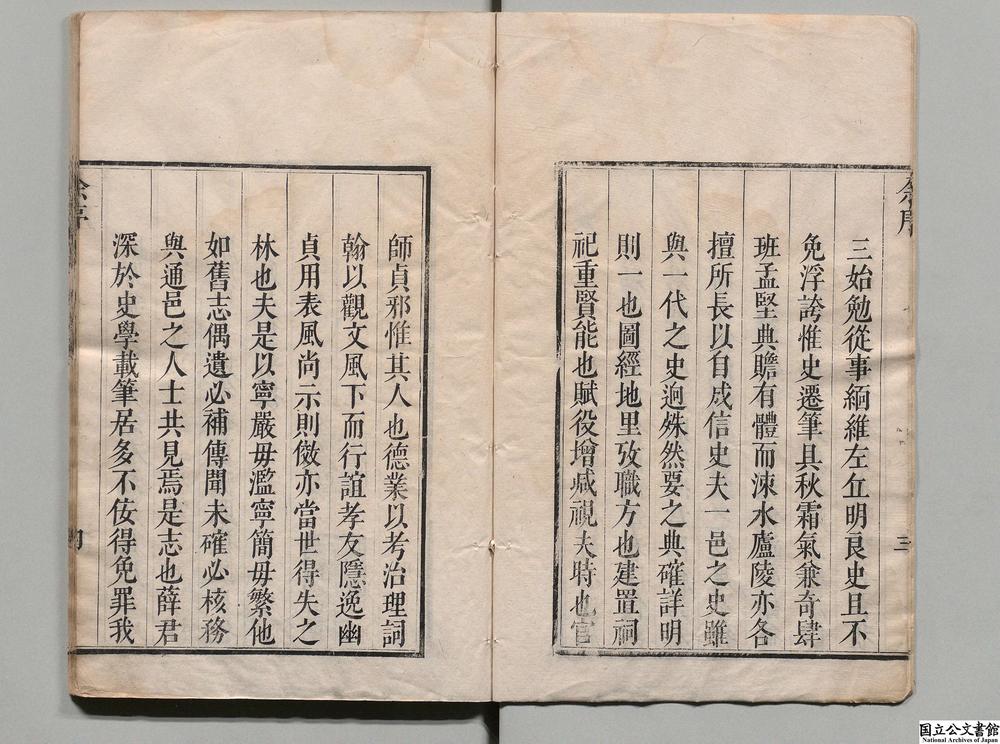 三始勉從事緬維左丘明良史且不
免浮誇惟史遷筆具秋霜氣兼奇肆
班孟堅典贍有體而涑水廬陵亦各
擅所長以自成信史夫一邑之史雖
與一代之史逈殊然要之典確詳明
則一也圖經地里攷職方也建置祠
祀重賢能也賦役增減視夫時也官
師貞邪惟其人也德業以考治理詞
翰以觀文風下而行誼孝友隱逸幽
貞用表風尚示則傚亦當世得失之
林也夫是以寧嚴毋濫寧簡毋繁他
如舊志偶遺必補傳聞未確必核務
與通邑之人士共見焉是志也薛君
深於史學載筆居多不佞得免罪我
余序
三
余序
四
国立公文書館
National Archives of Japan